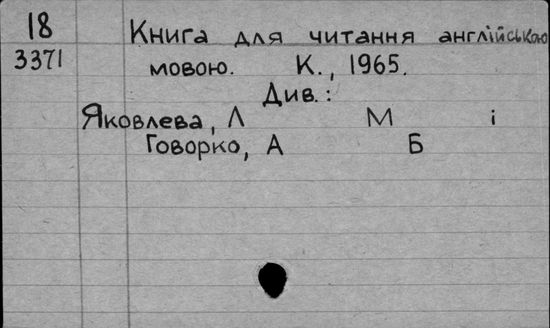 18
3371
Книга для читання англійською
мовою. К., 1965.
Див.:
Яковлева, Л М і
Говорко, А Б